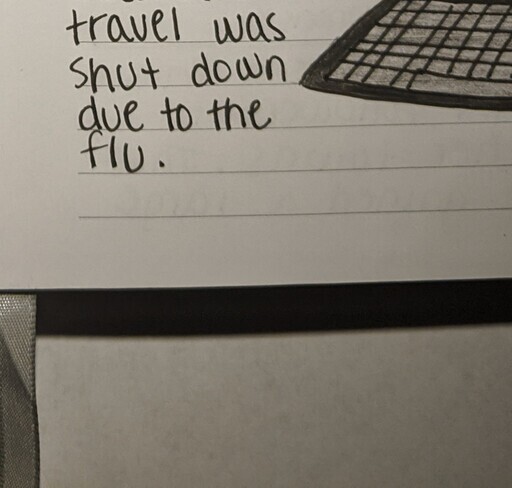 travel was
shut down
due to the
flu.